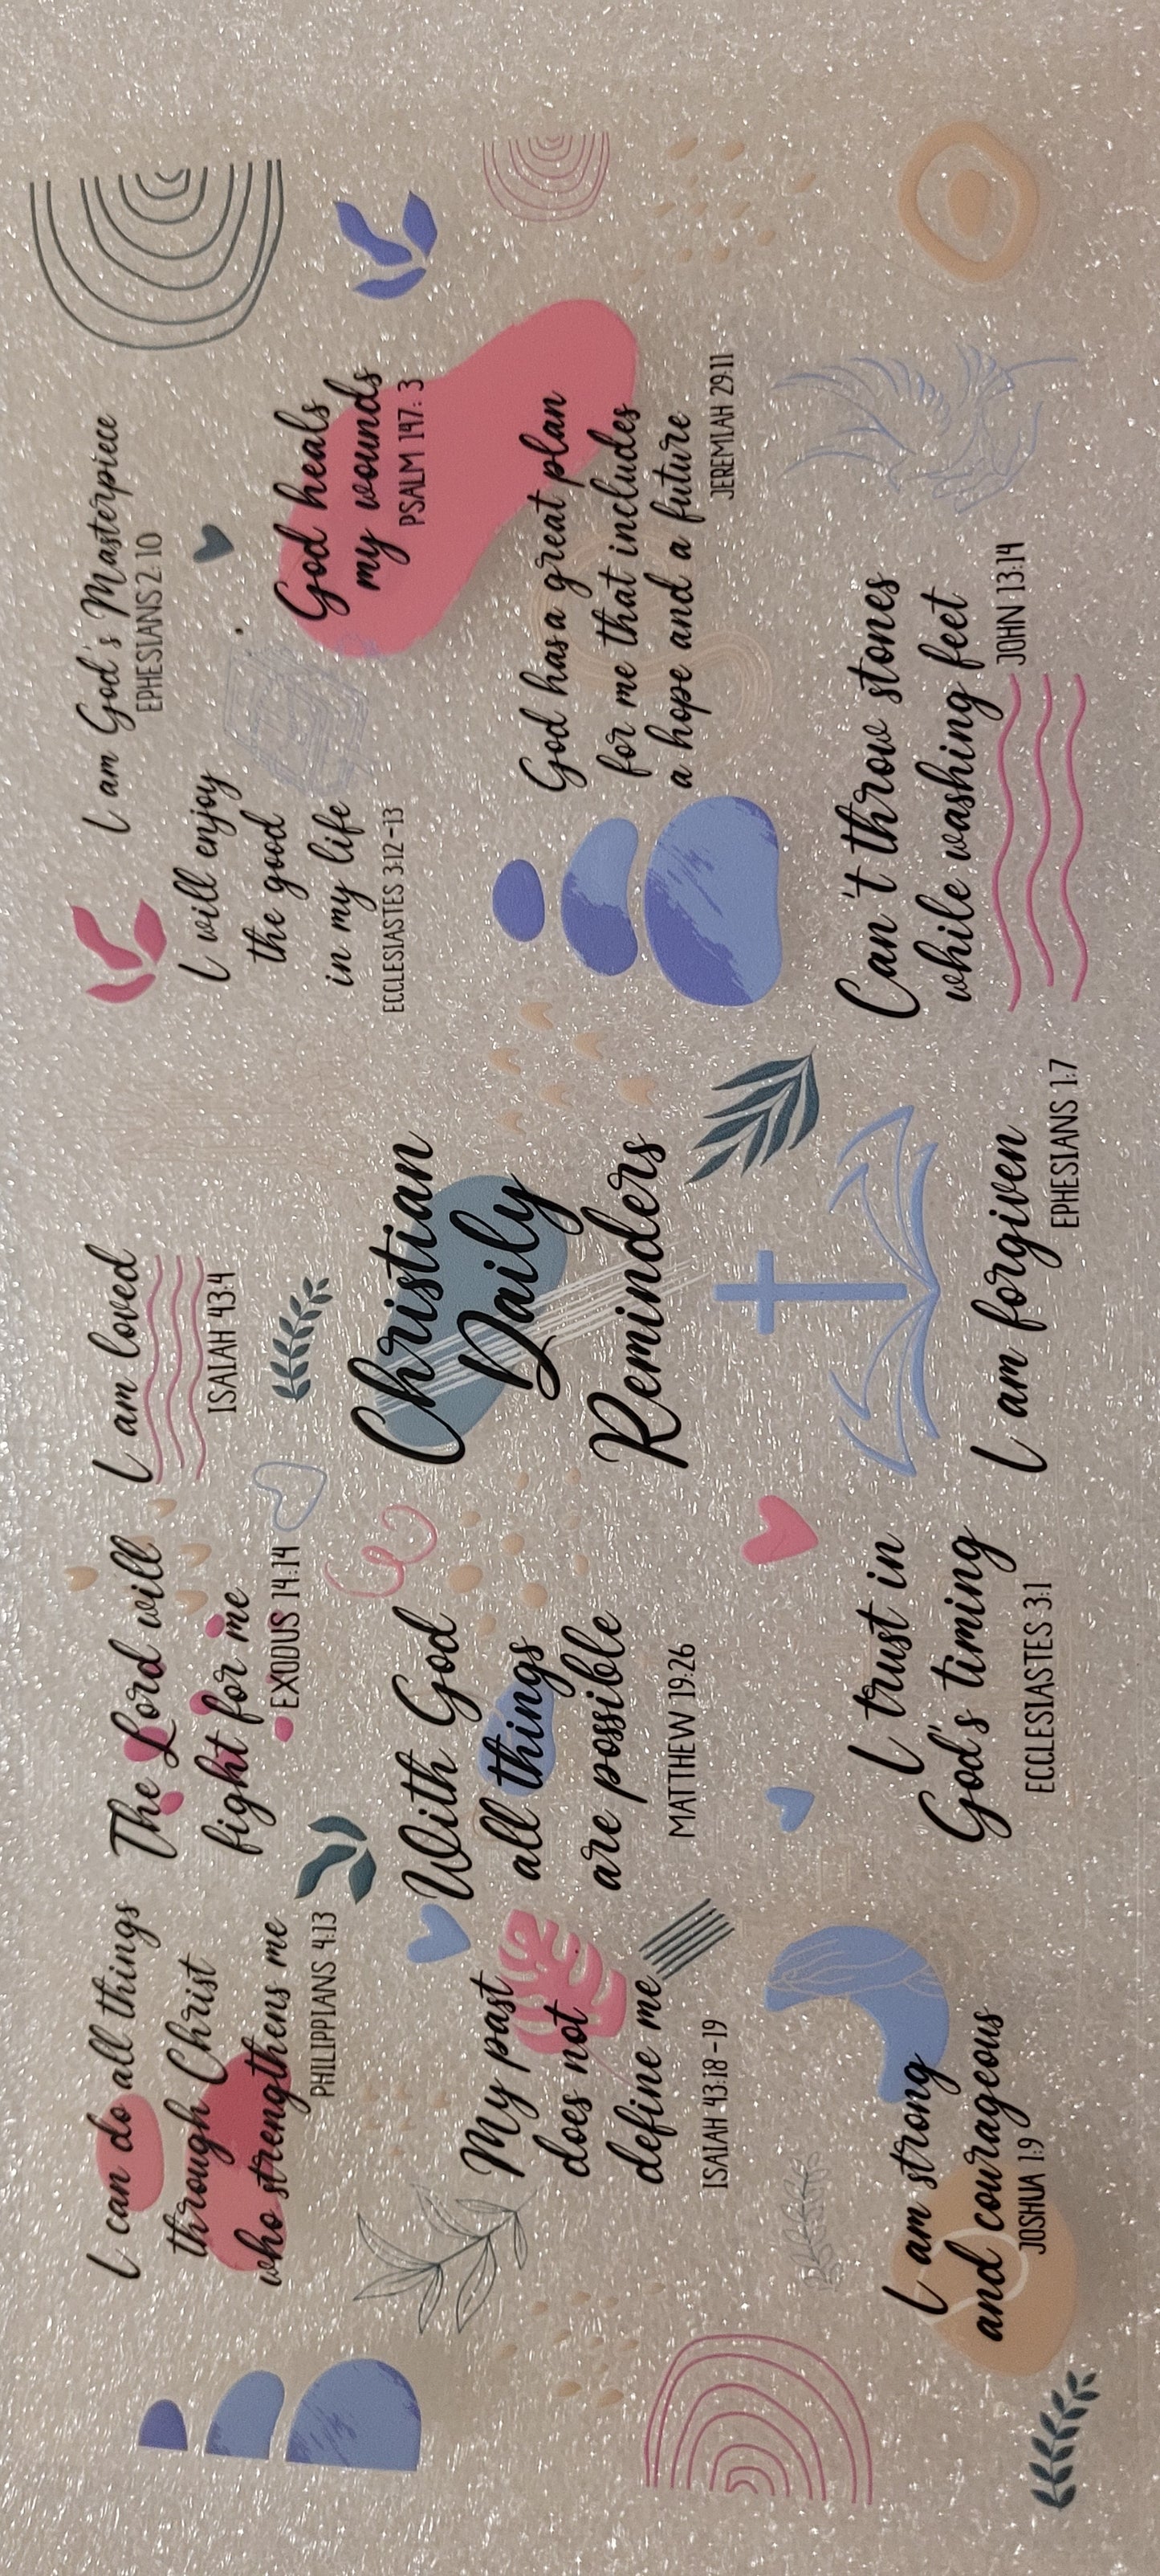 I can do all things
through Christ
who strengthens me
PHILIPPIANS 4:13
The Lord will
fight for me
EXODUS 14:14
I am loved
ISAIAH 43:4
I am God's Masterpiece
EPHESIANS 2:10
I will enjoy
the good
in my life
ECCLESIASTES 3:12-13
God heals
my wounds
PSALM 147:3
My past
does not
define me
ISAIAH 43:18-19
With God
all things
are possible
MATTHEW 19:26
Christian
Daily
Reminders
God has a great plan
for me that includes
a hope and a future
JEREMIAH 29:11
I am strong
and courageous
JOSHUA 1:9
I trust in
God's timing
ECCLESIASTES 3:1
I am forgiven
EPHESIANS 1:7
Can't throw stones
while washing feet
JOHN 13:14